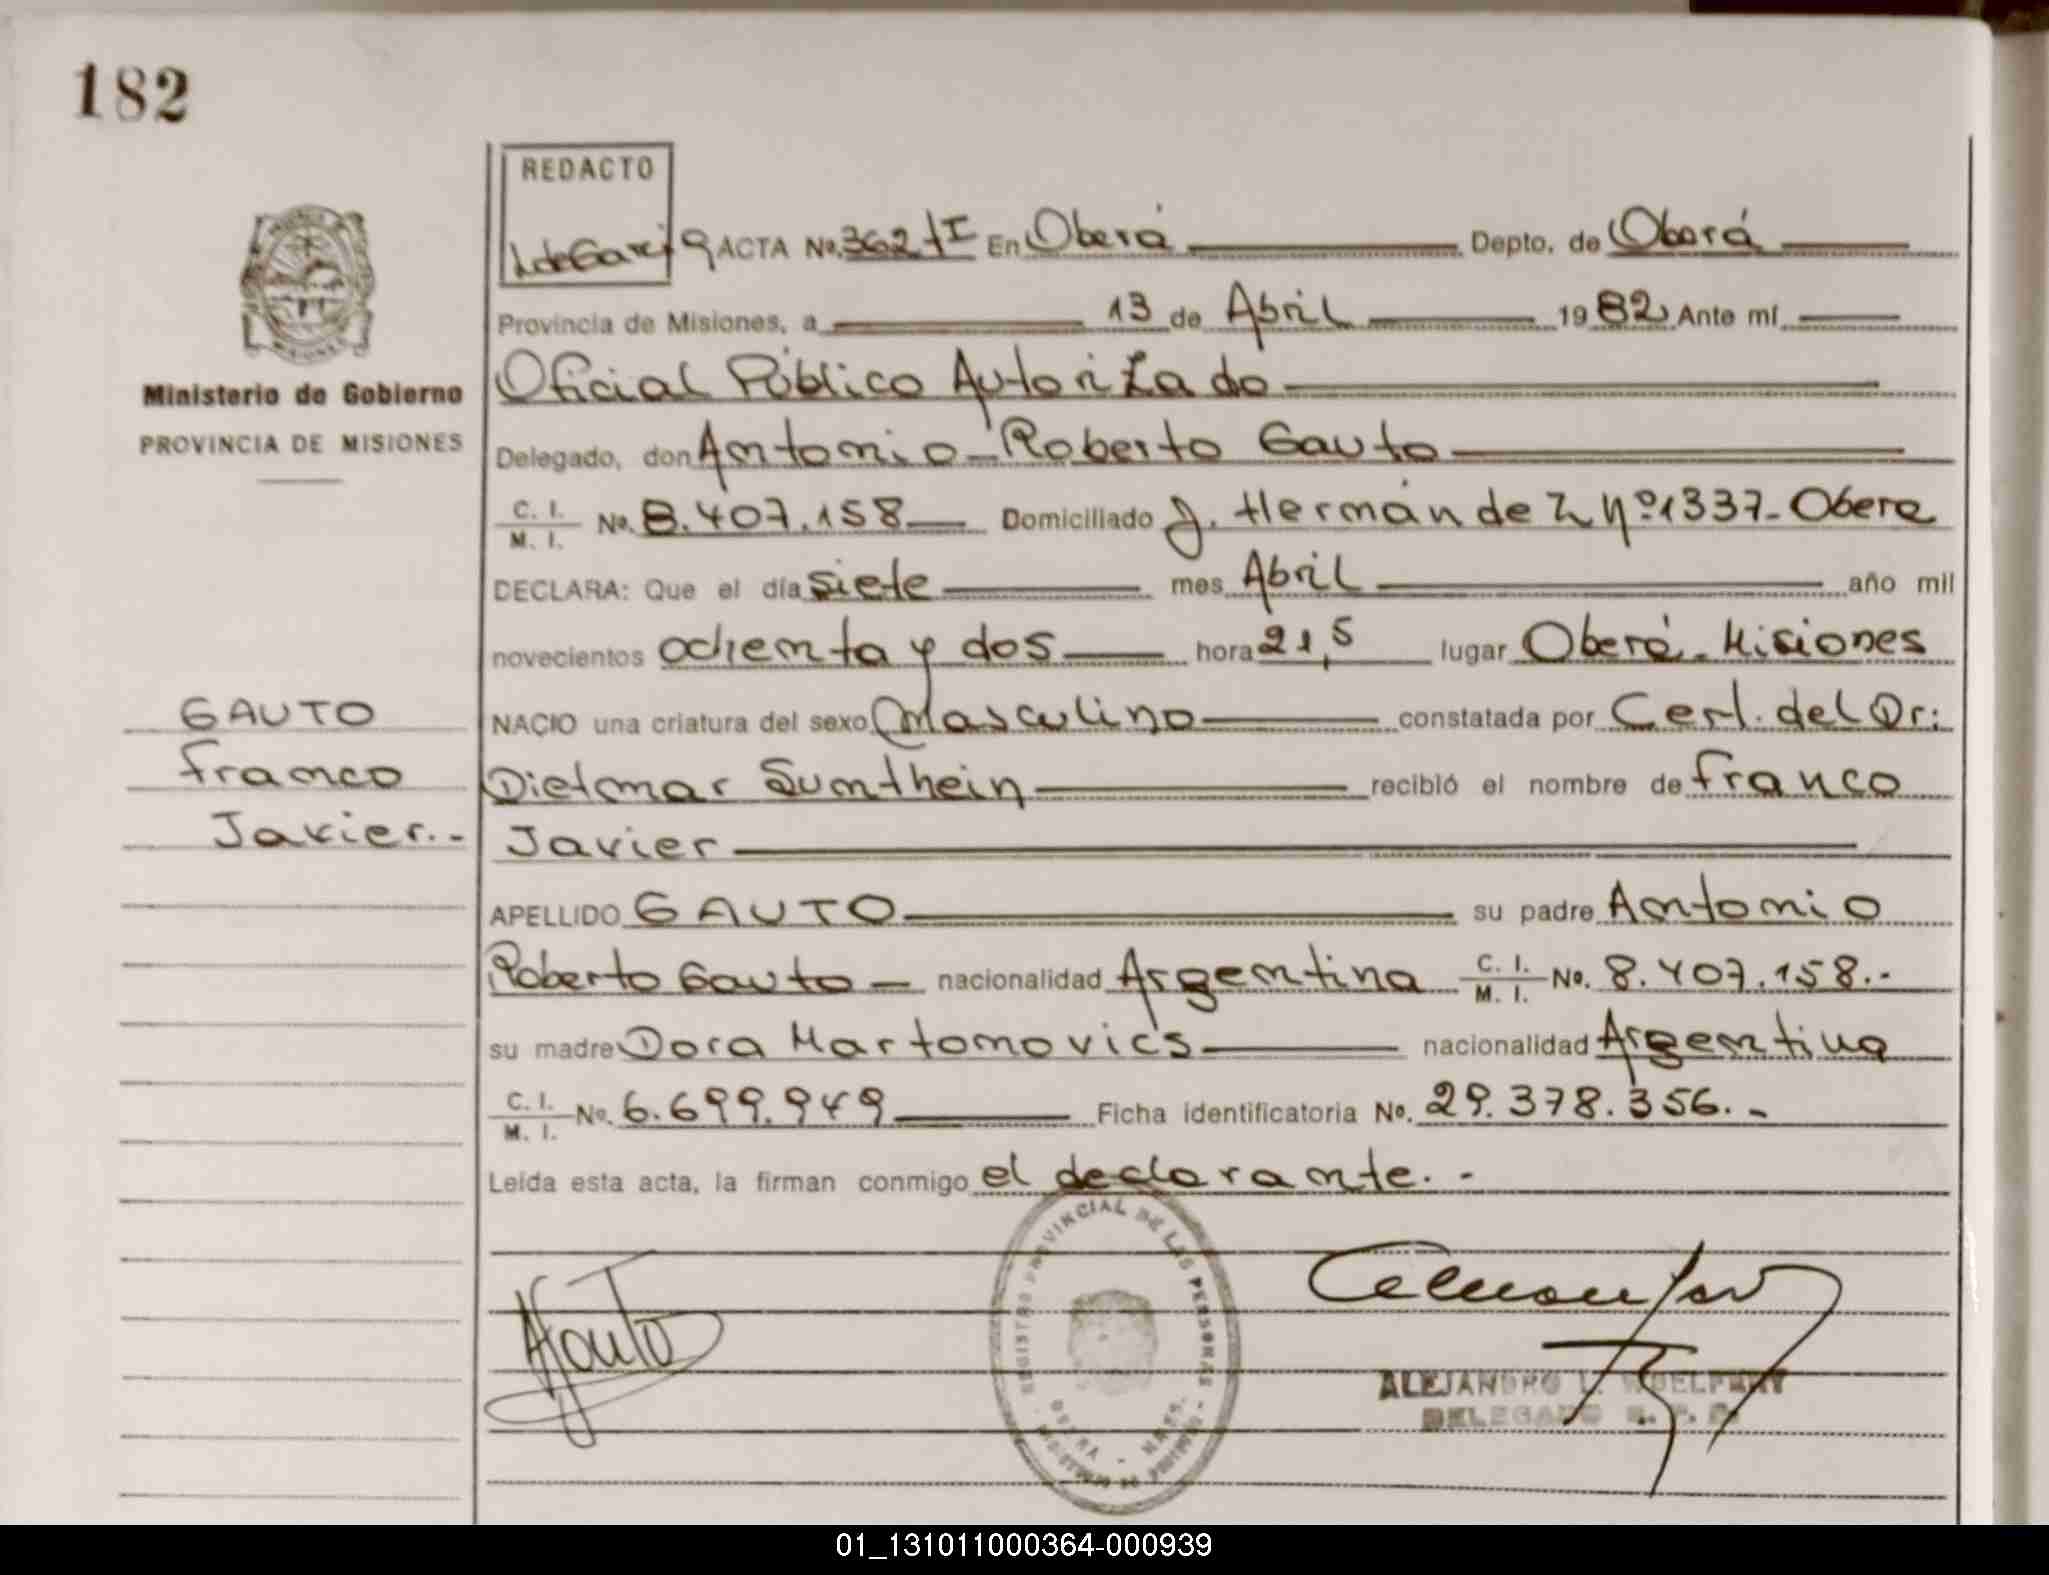 182
REDACTO
LdeGarcia ACTA No. 362 tI En Oberá Depto. de Oberá
Provincia de Misiones, a 13 de Abril 1982 Ante mí
MISIONES
Ministerio de Gobierno
PROVINCIA DE MISIONES
Oficial Público Autorizado
Delegado, don Antonio Roberto Gauto
C. I. / M. I. No. 8.407.158 Domiciliado J. Hernández Nº 1337-Obera
DECLARA: Que el día siete mes Abril año mil
novecientos ochenta y dos hora 21,5 lugar Oberá-Misiones
NACIO una criatura del sexo Masculino constatada por Cert. del Dr:
Dietmar Sumthein recibió el nombre de Franco
Javier
GAUTO
Franco
Javier.-
APELLIDO GAUTO su padre Antonio
Roberto Gauto nacionalidad Argentina C. I. / M. I. No. 8.407.158.-
su madre Dora Martomovics nacionalidad Argentina
C. I. / M. I. No. 6.699.949 Ficha identificatoria No. 29.378.356.-
Leída esta acta, la firman conmigo el declarante.-
REGISTRO PROVINCIAL DE LAS PERSONAS
OBERA - MNES.
AGauto
ALEJANDRO
DELEGADO
01_131011000364-000939